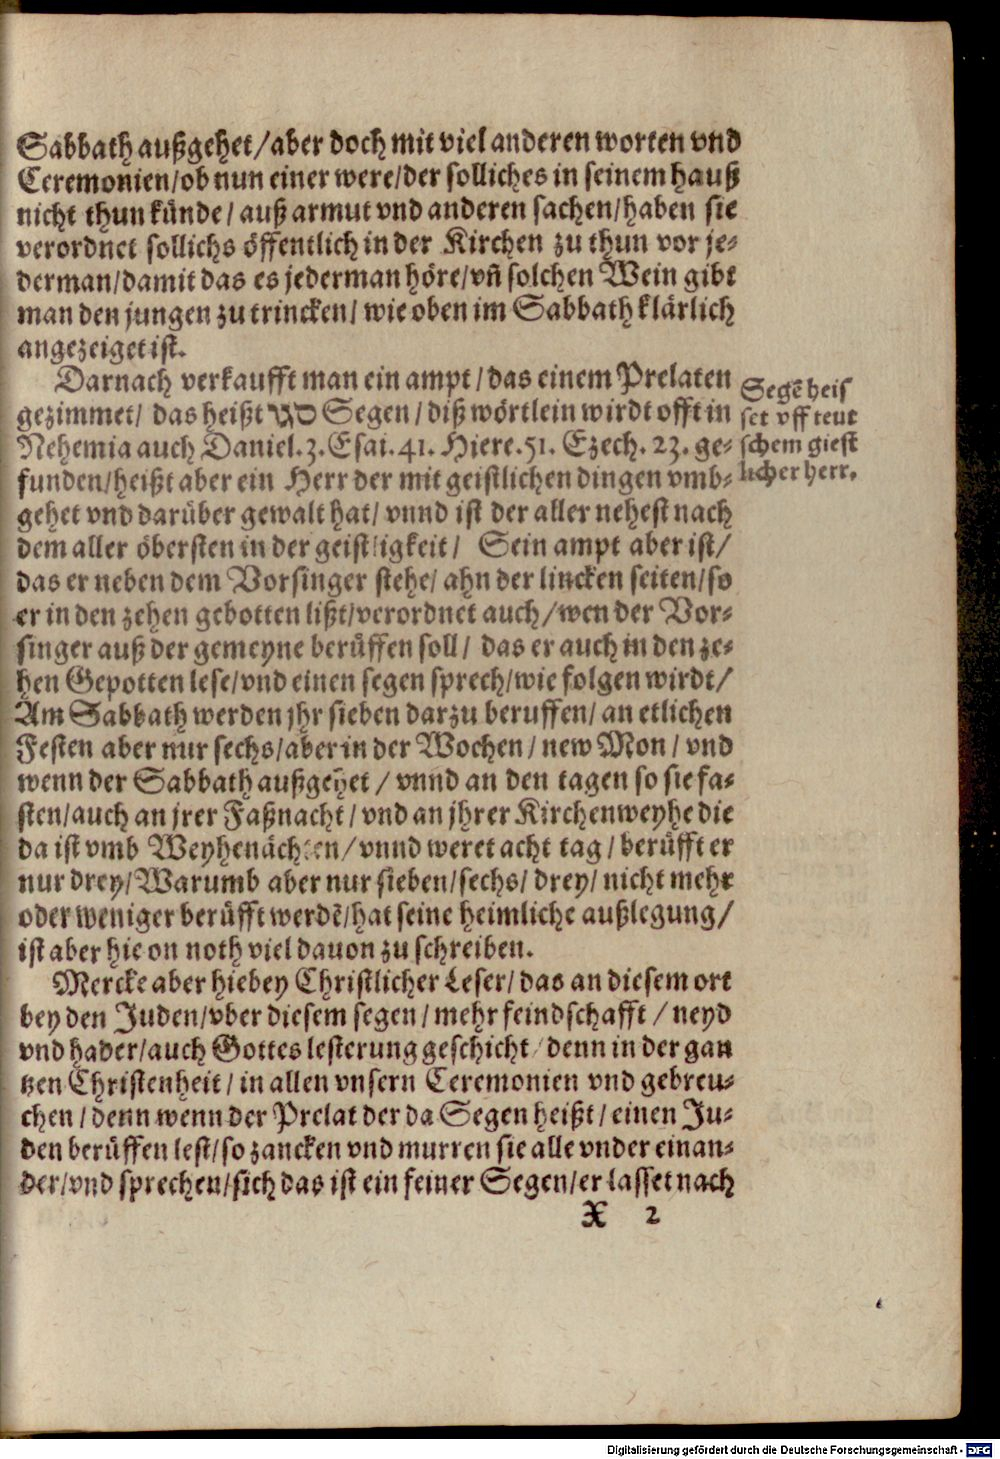 Sabbath außgehet/aber doch mit viel anderen worten vnd
Ceremonien/ob nun einer were/der solliches in seinem hauß
nicht thun künde/ auß armut vnd anderen sachen/haben sie
verordnet sollichs öffentlich in der Kirchen zu thun vor je-
derman/damit das es jederman höre/vñ solchen Wein gibt
man den jungen zu trincken/ wie oben im Sabbath klärlich
angezeiget ist.
Darnach verkaufft man ein ampt/das einem Prelaten
gezimmet/ das heißt Segen/diß wörtlein wirdt offt in
Nehemia auch Daniel.3.Esai.41.Hiere.51. Ezech.23.ge-
funden/heißt aber ein Herr der mit geistlichen dingen vmb-
gehet vnd darüber gewalt hat/ vnnd ist der aller nehest nach
dem aller öbersten in der geistligkeit/ Sein ampt aber ist/
das er neben dem Vorsinger stehe/ ahn der lincken seiten/so
er in den zehen gebotten lißt/verordnet auch/wen der Vor-
singer auß der gemeyne berüffen soll/ das er auch in den ze-
hen Gepotten lese/vnd einen segen sprech/wie folgen wirdt/
Am Sabbath werden jhr sieben darzu beruffen/an etlichen
Festen aber nur sechs/aber in der Wochen/new Mon/vnd
wenn der Sabbath außgehet/ vnnd an den tagen so sie fa-
sten/auch an jrer Faßnacht/vnd an jhrer Kirchenweyhe die
da ist vmb Weyhenächten/vnnd weret acht tag/berüfft er
nur drey/Warumb aber nur sieben/sechs/drey/nicht mehr
oder weniger berüfft werdē/hat seine heimliche außlegung/
ist aber hie on noth viel dauon zu schreiben.
Mercke aber hiebey Christlicher Leser/das an diesem ort
bey den Juden/vber diesem segen/mehr feindschafft/neyd
vnd hader/auch Gottes lesterung geschicht/denn in der gan
tzen Christenheit/in allen vnsern Ceremonien vnd gebreu-
chen/denn wenn der Prelat der da Segen heißt/einen Ju-
den berüffen lest/so zancken vnd murren sie alle vnder einan-
der/vnd sprechen/sich das ist ein feiner Segen/er lasset nach
X 2
Segē heis
set vff teut
schem giest
licher herr.
Digitalisierung gefördert durch die Deutsche Forschungsgemeinschaft - DFG